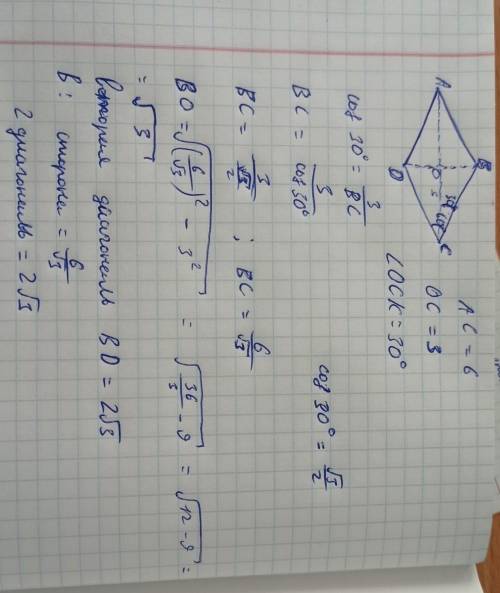 A
B
C
D
O
AC = 6
OC = 3
∠OCK = 30°
cos 30° = 3/BC
cos 30° = √3/2
BC = 3/cos 30°
BC = 3/(√3/2) ; BC = 6/√3
BO = √((6/√3)² - 3²) = √(36/3 - 9) = √(12 - 9) =
= √3
вторая диагональ BD = 2√3
в: сторона = 6/√3
2 диагональ = 2√3